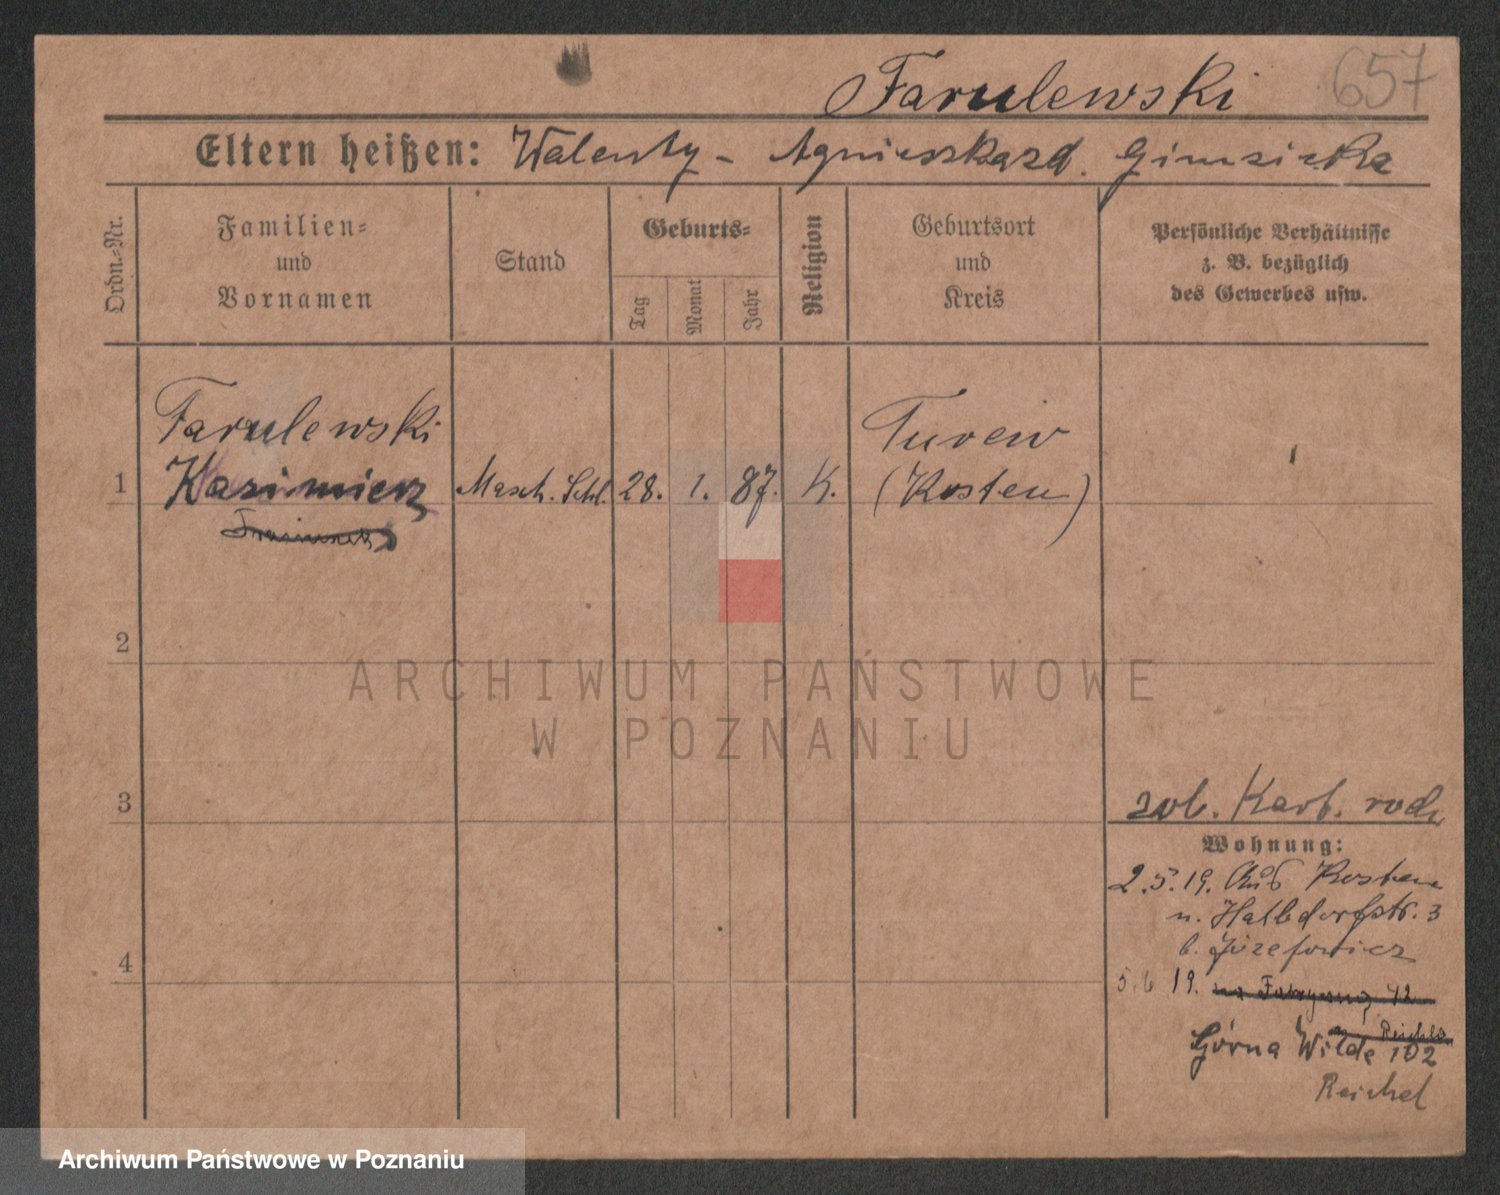 Farulewski 657
Eltern heißen: Walenty - Agnieszka zd.
Ordn.-Nr.
Familien-
und
Vornamen
Stand
Geburts-
Tag
Monat
Jahr
Religion
Geburtsort
und
Kreis
Persönliche Verhältnisse
z. B. bezüglich
des Gewerbes usw.
Farulewski
1 Kasimierz Masch. Schl. 28. 1. 87. K.
Turew
(Kosten)
2
ARCHIWUM PAŃSTWOWE
W POZNANIU
3
zob. Kart. rodz
Wohnung:
2.5.19. Aus Kosten
n. Halbdorfstr. 3
b. Józefowicz
4
5.6 19.
Górna Wilde 102
Reichel
Archiwum Państwowe w Poznaniu